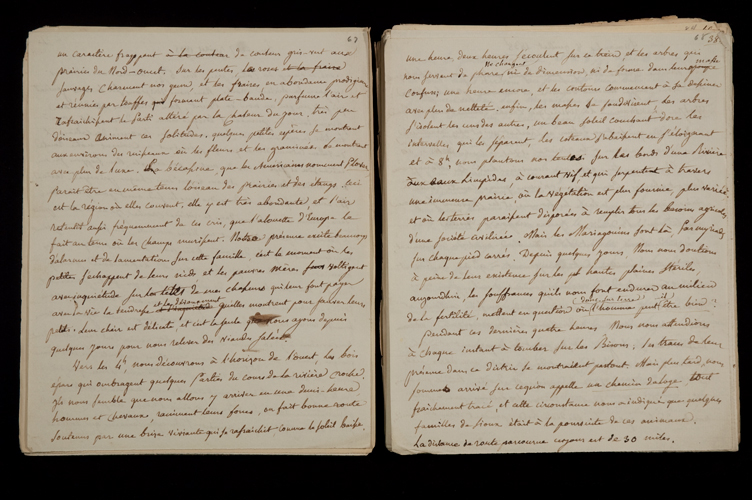 63
un caractère frappant de couleur gris-vert aux
prairies du Nord-ouest. Sur les pentes, les roses
sauvages charment nos yeux, et les fraises, en abondance prodigieuse
et réunies par touffes forment plate-bande, parfument l'air et
rafraichissent le altéré par la chaleur du jour, très peu
d'oiseaux animent ces solitudes, quelques petites espèces se montrent
aux environs des ruisseaux où les fleurs et les graminées se montrent
avec plus de luxe. La bécassine que les Américains nomment Plover
parait être en même tems l'oiseau des prairies et des étangs. Ceci
est la région où elles couvent. elle y est très abondante et l'air
retentit aussi fréquemment de ces cris, que l'alouette d'Europe le
fait au tems où les champs murissent. Notre présence excite beaucoup
d'alarmes et de lamentations sur cette famille. c'est le moment où les
petits s'échappent de leurs nids et les pauvres mères voltigent
avec inquiétude sur les têtes de nos chasseurs qui leur font payer
avec la vie la tendresse et le dévouement qu'elles montrent pour sauver leurs
petits. Leur chair est délicate, et c'est la seule que nous ayons depuis
quelques jours pour nous relever des viandes salées.
Vers les 4h nous découvrons à l'horizon de l'ouest, les bois
épars qui ombragent quelques parties du cours de la rivière Croche.
Il nous semble que nous allons y arriver en une demi-heure
hommes et chevaux, raniment leurs forces, on fait bonne route
soutenus par une brise vivante qui se rafraichit comme le soleil baisse.
68 38
une heure, deux heures s'écoulent sur ce train, et les arbres qui
nous servent de phares, ne changent ni de dimension, ni de forme dans leurs masses
confuses; une heure encore, et les contours commencent à se dessiner
avec plus de netteté. enfin, les masses se subdivisent, les arbres
s'isolent les uns des autres, un beau soleil couchant dore les
intervalles, qui les séparent, les coteaux s'abaissent en s'éloignant
et à 8h nous plantons nos tentes. Sur les bords d'une Rivière
aux eaux limpides, à courant vif, et qui serpentent à travers
une immense prairie, où la végétation est plus fournie, plus variée
et où les terres paraissent disposées à remplir tous les besoins agricoles
d'une société civilisée. Mais les Maringouins sont là
sur chaque pied carré. Depuis quelques jours, nous nous doutions
à peine de leur existence sur les plus hautes plaines stériles
aujourdhui, les souffrances qu'ils nous font endurer au milieu
de la fertilité, mettent en question où l'homme dans sur terre peut-il être bien?
pendant ces dernières quatre heures. Nous nous attendions
à chaque instant à tomber sur les Bisons; les traces de leur
présence dans ce district se montraient partout. Mais plus tard, nous
sommes arrivés sur ce qu'on appelle un chemin de loge. tout
fraichement tracé, et cette circonstance nous a indiqué que quelques
familles de Sioux était à la poursuite de ces animaux.
La distance de route parcourue croyons est de 30 miles.